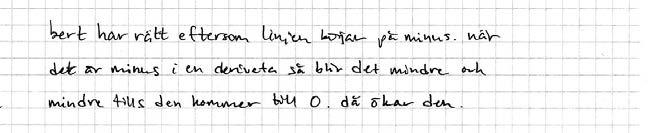 bert har rätt eftersom linjen börjar på minus. när
det är minus i en deriveta så blir det mindre och
mindre tills den kommer till 0. då ökar den.